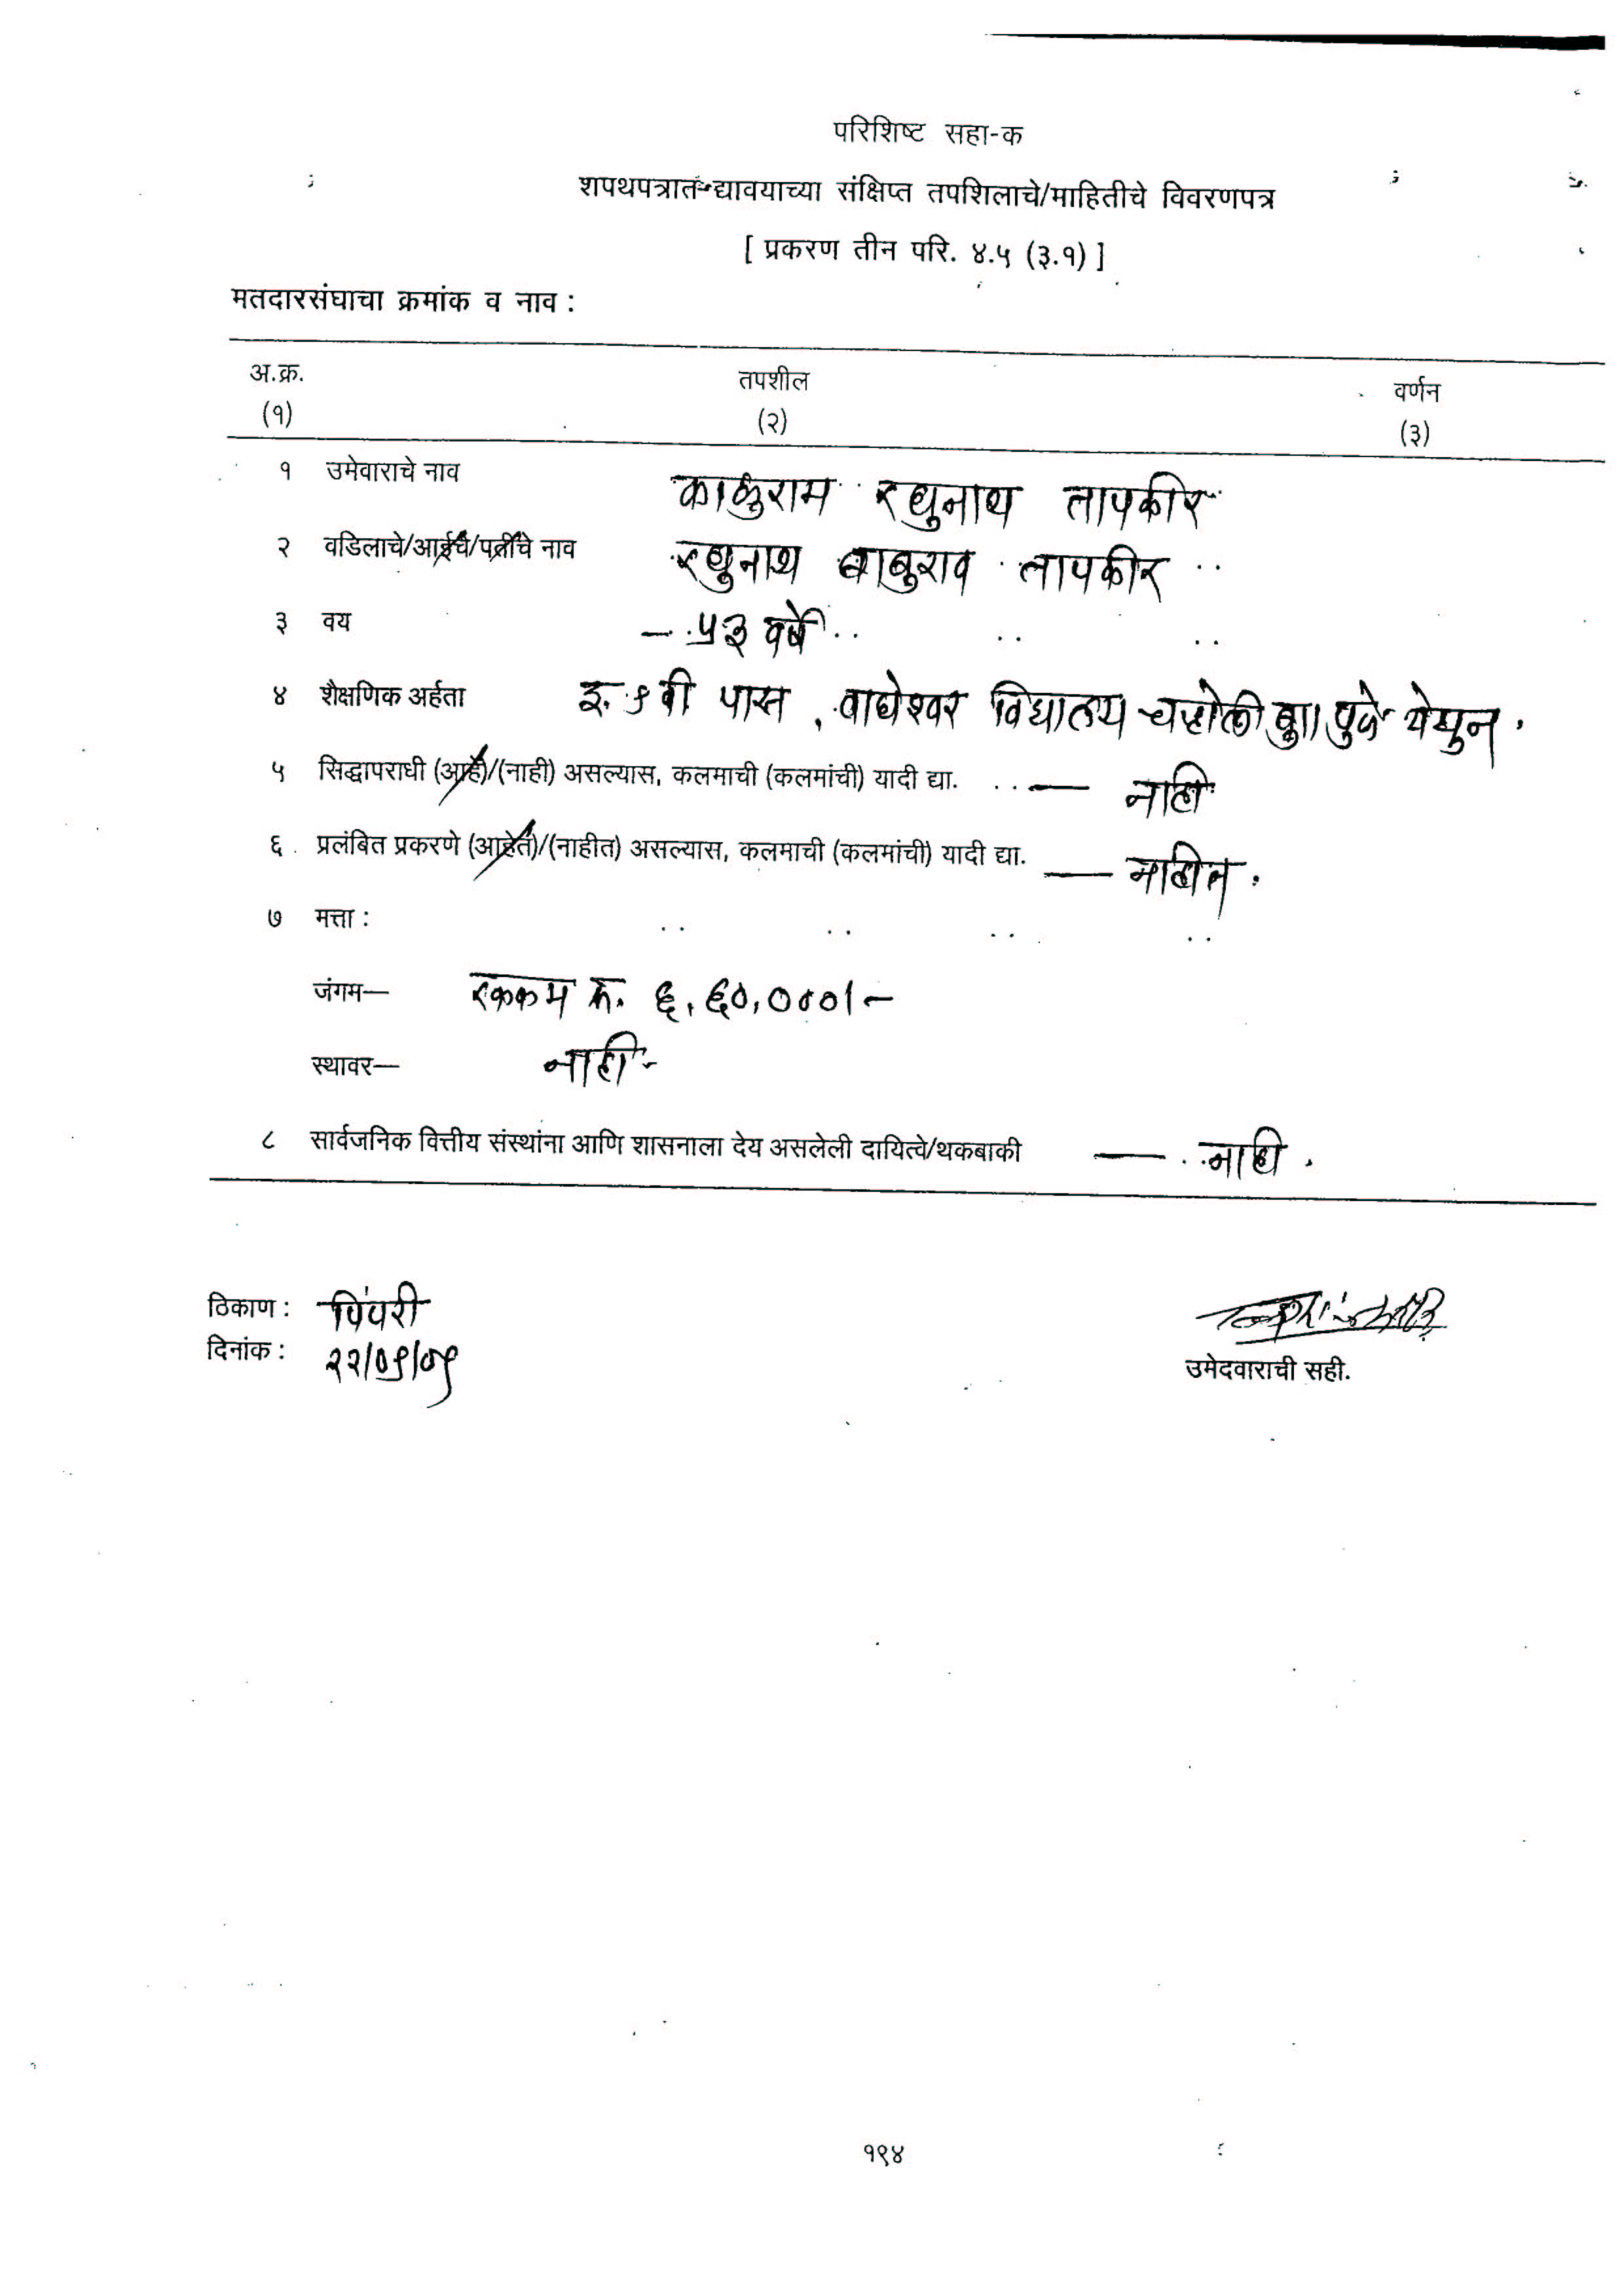 परिशिष्ट सहा-क
शपथपत्रात द्यावयाच्या संक्षिप्त तपशिलाचे/माहितीचे विवरणपत्र
[ प्रकरण तीन परि. ४.५ (३.१) ]
मतदारसंघाचा क्रमांक व नाव :
अ.क्र. तपशील वर्णन
(१) (२) (३)
१ उमेवाराचे नाव काळुराम रघुनाथ तापकीर
२ वडिलाचे/आईचे/पतीचे नाव रघुनाथ बाबुराव तापकीर ..
३ वय — ५३ वर्षे .. .. ..
४ शैक्षणिक अर्हता इ. ९ वी पास , वाघेश्वर विद्यालय चऱ्होली बु॥ पुणे येथुन .
५ सिद्धापराधी (आहे)/(नाही) असल्यास, कलमाची (कलमांची) यादी द्या. .. — नाही
६ प्रलंबित प्रकरणे (आहेत)/(नाहीत) असल्यास, कलमाची (कलमांची) यादी द्या. — नाहीत .
७ मत्ता : .. .. .. ..
जंगम— रक्कम रु. ६,६०,०००/-
स्थावर— नाही -
८ सार्वजनिक वित्तीय संस्थांना आणि शासनाला देय असलेली दायित्वे/थकबाकी — नाही .
ठिकाण : पिंपरी
दिनांक : २२/०९/०९
उमेदवाराची सही.
१९४